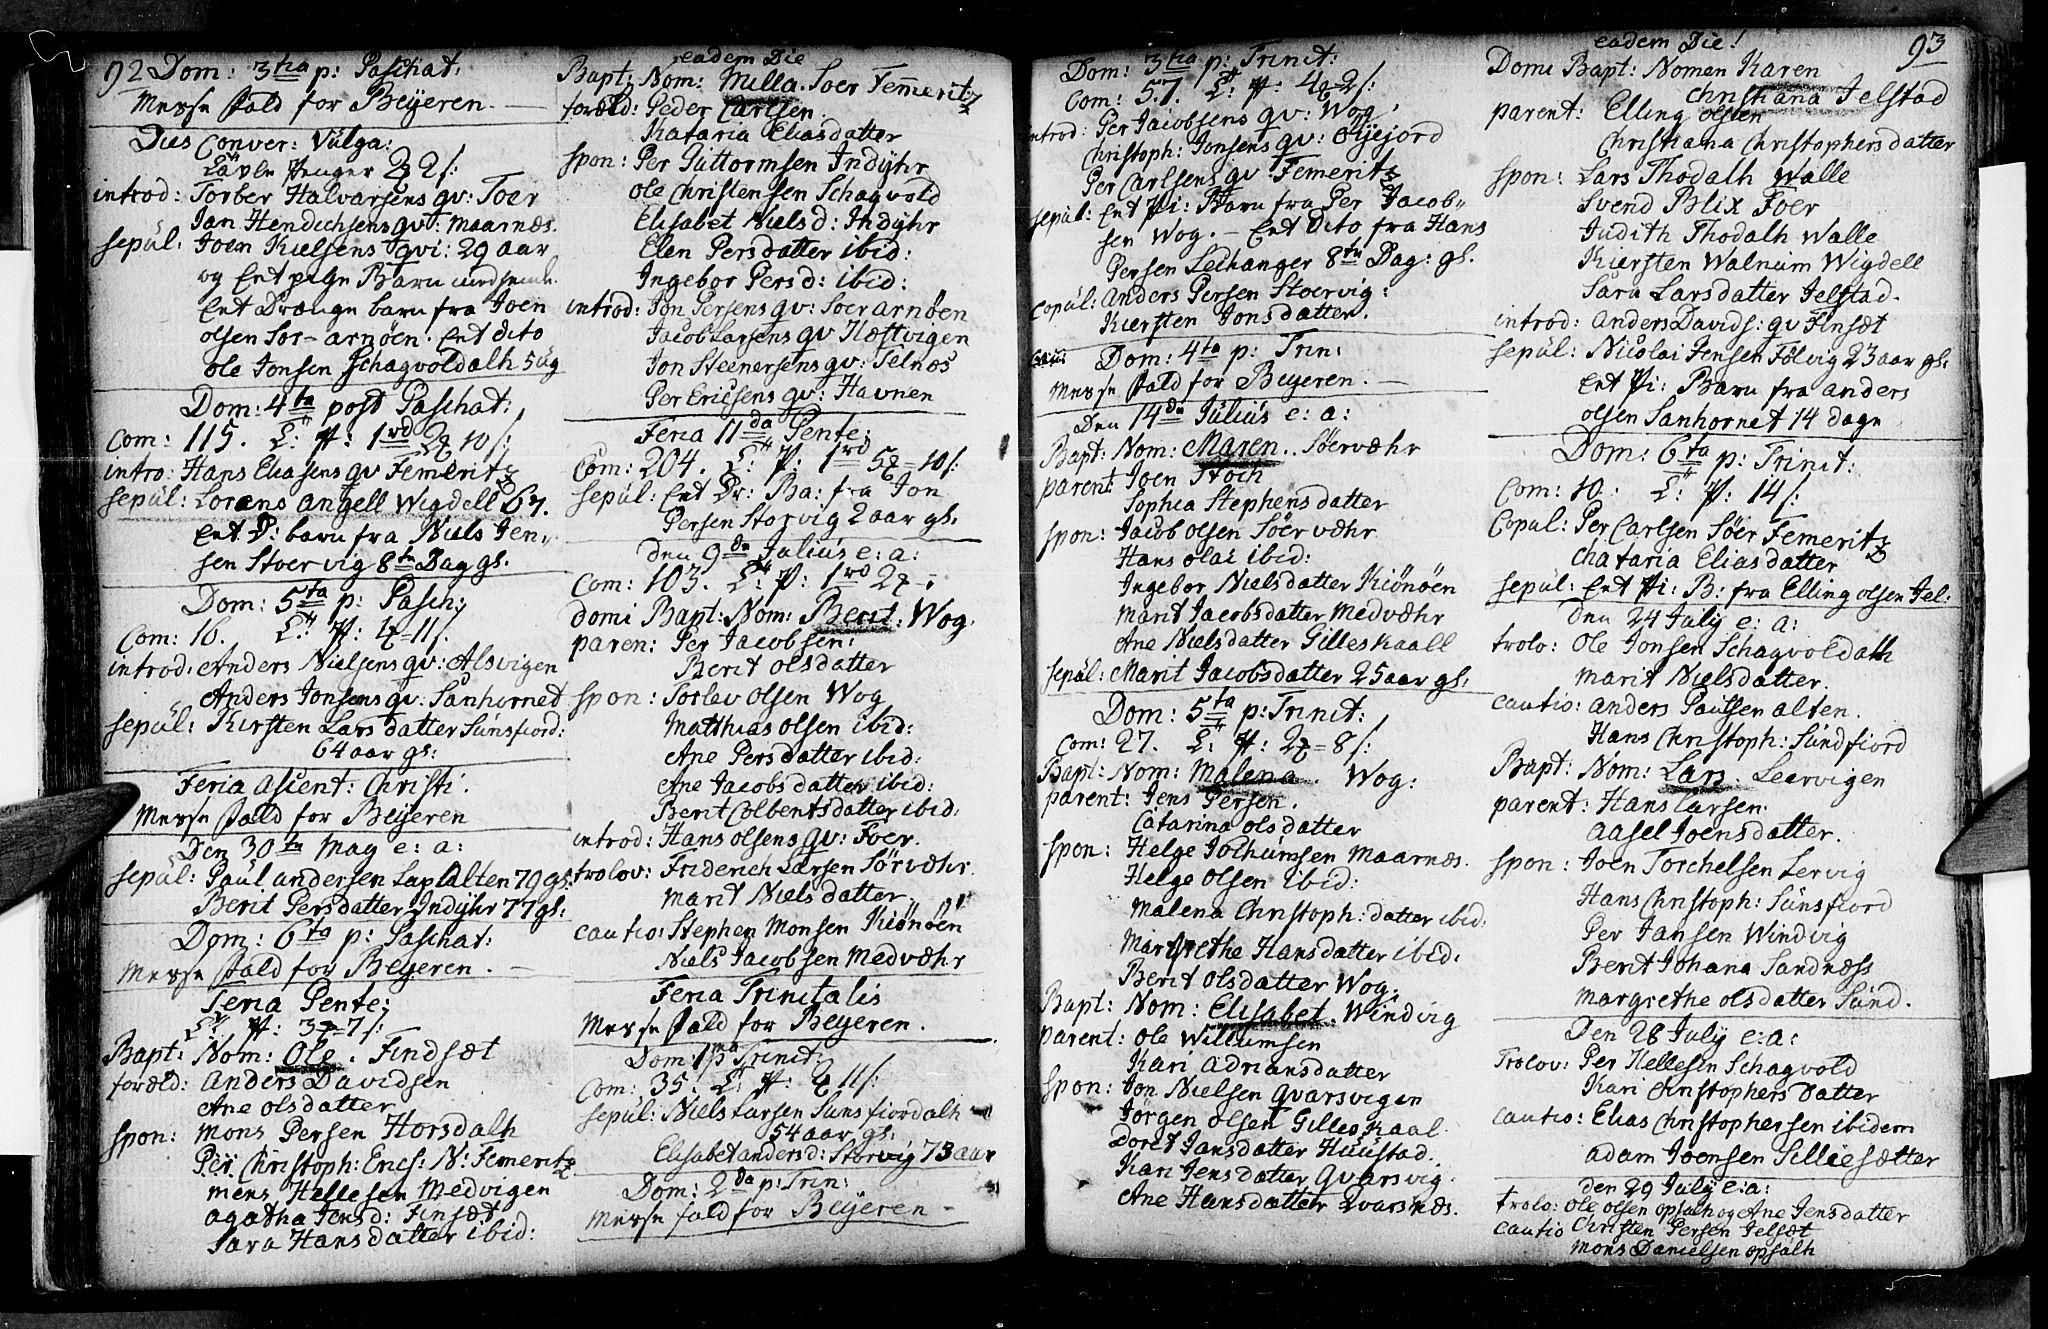 92 Dom: 3tia p: Paschat:
Messe fald for Beyeren.
Dies Conver: Vulga:
Tavle Penger 2 2/:
introd: Torber Halvarsens qv: Foer
Jan Hendichsens qv: Maarnæs.
sepul: Joen Kielsens qvi: 29 aar
og Ent Barn
Ent Drænge barn fra Joen
olsen Sor-arnöen. Ent dito
ole Jonsen Schagvoldalh 5 ug
Dom: 4ta post Paschat:
Com: 115. 1rd 10/:
intro: Hans Eliasens qv Femeritz
sepul: Lorens angell Wigdell 67.
Ent P: barn fra Niels Jen,,
sen Stoervig 8te Dag gl.
Dom: 5ta p: Pasch:
Com: 16. 11/:
introd: Anders Nielsens qv: Alsvigen
Anders Jonsens qv: Sanhornet
sepul: Kirsten Lars datter Sunsfiord:
64 aar gl:
Feria Ascent: Christi.
Messe fald for Beyeren
Den 30te May e: a:
sepul: Paul andersen Lap alten 79 gl:
Berit Persdatter Indyhr 77 gl:
Dom: 6ta p: Paschat:
Messe fald for Beyeren.
Feria Pente:
7/:
Bapt: Nom: Ole. Findsæt
foræld: Anders Davidsen
Ane olsdatter
spon: Mons Persen Horsdalh
Per. Christoph: Erics: N: Femeritz
Mens Hellesen Medvigen
agatha Jensd: Finsæt
Sara Hansdatter ibid:
eadem Die
Bapt: Nom: Milla. Soer Femeritz
foræld: Peder Carlsen.
Kataria Eliasdatter
spon: Per Guttormsen Indyhr
Ole Christensen Schagvold
Elisabet Nielsd: Indyhr
Elen Persdatter ibid:
Ingebor Persd: ibid:
introd: Jon Persens qv: Soer arnöen
Jacob Larsens qv Hæstvigen
Jon Steenersens qv: Selnæs
Per Ericsens qv: Havnen
Feria 11da Pente:
Com: 204. 1rd 10/:
sepul: Ent Dr: Ba: fra Jon
Persen Storvig 2 aar gl.
den 9de Julius e: a:
Com: 103. 1rd
domi Bapt: Nom: Berit. Wog.
paren: Per Jacobsen:
Berit olsdatter
spon: Torlev olsen Wog
Matthias olsen ibid:
Ane Persdatter ibid:
Ane Jacobsdatter ibid:
Berit Colbentsdatter ibid:
introd: Hans olsens qv: Foer.
trolov: Friderich Larsen Sörværhr.
Marit Nielsdatter
cautio: Stephen Monsen Kiönöen
Niels Jacobsen Medvæhr
Feria Trinitalis
Messe fald for Beyeren.
Dom: 1ma Trinit:
Com: 35. 11/:
sepul: Niels Larsen Sunsfiordalh
54 aar gl:
Elisabet andersd: Storvig 73 aar
Dom: 2da p: Trin:
Messe fald for Beyeren
Dom: 3tia p: Trinit:
Com: 57. 2/:
introd: Per Jacobsens qv: Wog
Christoph: Jonsens qv:
Per Carlsens qv Femeritz
sepul: Ent Pi: Barn fra Per Jacob,,
sen Wog. Ent Dito fra Hans
Persen Lechanger 8te Dag: gl.
Copul: Anders Persen Stoervig:
Kiersten Jonsdatter.
Dom: 4ta p: Trin:
Messe fald for Beyeren.
Den 14de Julius e: a:
Bapt: Nom: Maren. Söerværhr
parent: Joen Stoch
Sophia Stephensdatter
spon: Jacob olsen Söerværhr
Hans olai ibid:
Ingebor Nielsdatter Kiönöen
Marit Jacobsdatter Medvæhr
Ane Nielsdatter Gilleskaall
sepul: Marit Jacobsdatter 25 aar gl:
Dom: 5ta p: Trinit:
Com: 27. 8/:
Bapt: Nom: Malena. Wog:
parent: Jens Persen.
Catarina olsdatter
spon: Helge Jochumsen Maarnæs.
Helge olsen ibid:
Malena Christoph: datter ibid:
Margrethe Hansdatter ibid:
Berit olsdatter Wog:
Bapt: Nom: Elisabet. Windvig
parent: Ole Willumsen
Kari Adriansdatter
spon: Jon Nielsen Qvarsvigen
Jörgen olsen Gilleskaal
Doret Jansdatter Huustad.
Kari Jensdatter Qvarsvig.
Ane Hansdatter Qvarsnæs.
eadem Die! 93
Domi Bapt: Nomen Karen
Christiana Jelstad
parent: Elling olsen
Christiana Christophersdatter
spon: Lars Thodalh Walle
Svend Blix Foer
Judith Thodalh Walle
Kiersten Walnum Wigdell
Sara Larsdatter Jelstad.
introd: Anders Davids: qv Finsæt
sepul: Nicolai Jensen Fölvig 23 aar gl:
Ent Pi: Barn fra anders
olsen Sanhornet 14 dage
Dom: 6ta p: Trinit:
Com: 10. 14/:
Copul: Per Carlsen Söer Femeritz
Chataria Eliasdatter
sepul: Ent Pi: B: fra Elling olsen Jel:
Den 24 July e: a:
trolo: Ole Jonsen Schagvoldalh
Marit Nielsdatter.
cautio: Anders Paulsen alten.
Hans Christoph: Sundfiord
Bapt: Nom: Lars. Leervigen
parent: Hans Larsen:
Aasel Joensdatter.
spon: Joen Torchelsen Lervig
Hans Christoph: Sunsfiord
Per Jansen Windvig
Berit Johana Sandnæss
Margrethe olsdatter Sund.
Den 28 July e: a:
Trolov: Per Hellesen Schagvold
Kari Christophers Datter
cautio: Elias Christophersen ibidem
Adam Joensen Selliesætter
den 29 July e: a:
trolo: Ole olsen opsalh og Ane Jensdatter
cautio Christen Persen Jelsæt
Mons Danielsen opsalh